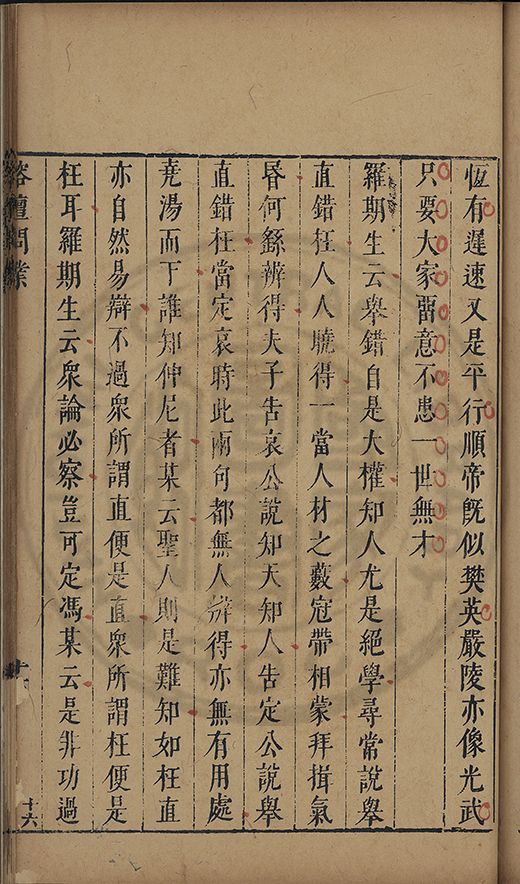 恆有遲速又是平行順帝既似樊英嚴陵亦像光武
只要大家畱意不患一世無才
羅期生云舉錯自是大權知人尤是絕學尋常說舉
直錯枉人人曉得一當人材之藪冠帶相蒙拜揖氣
昬何繇辨得夫子告哀公說知天知人告定公說舉
直錯枉當定哀時此兩句都無人辨得亦無有用處
堯湯而下誰知仲尼者某云聖人則是難知如枉直
亦自然易辯不過衆所謂直便是直衆所謂枉便是
枉耳羅期生云衆論必察豈可定馮某云是非功過
榕壇問業
十六